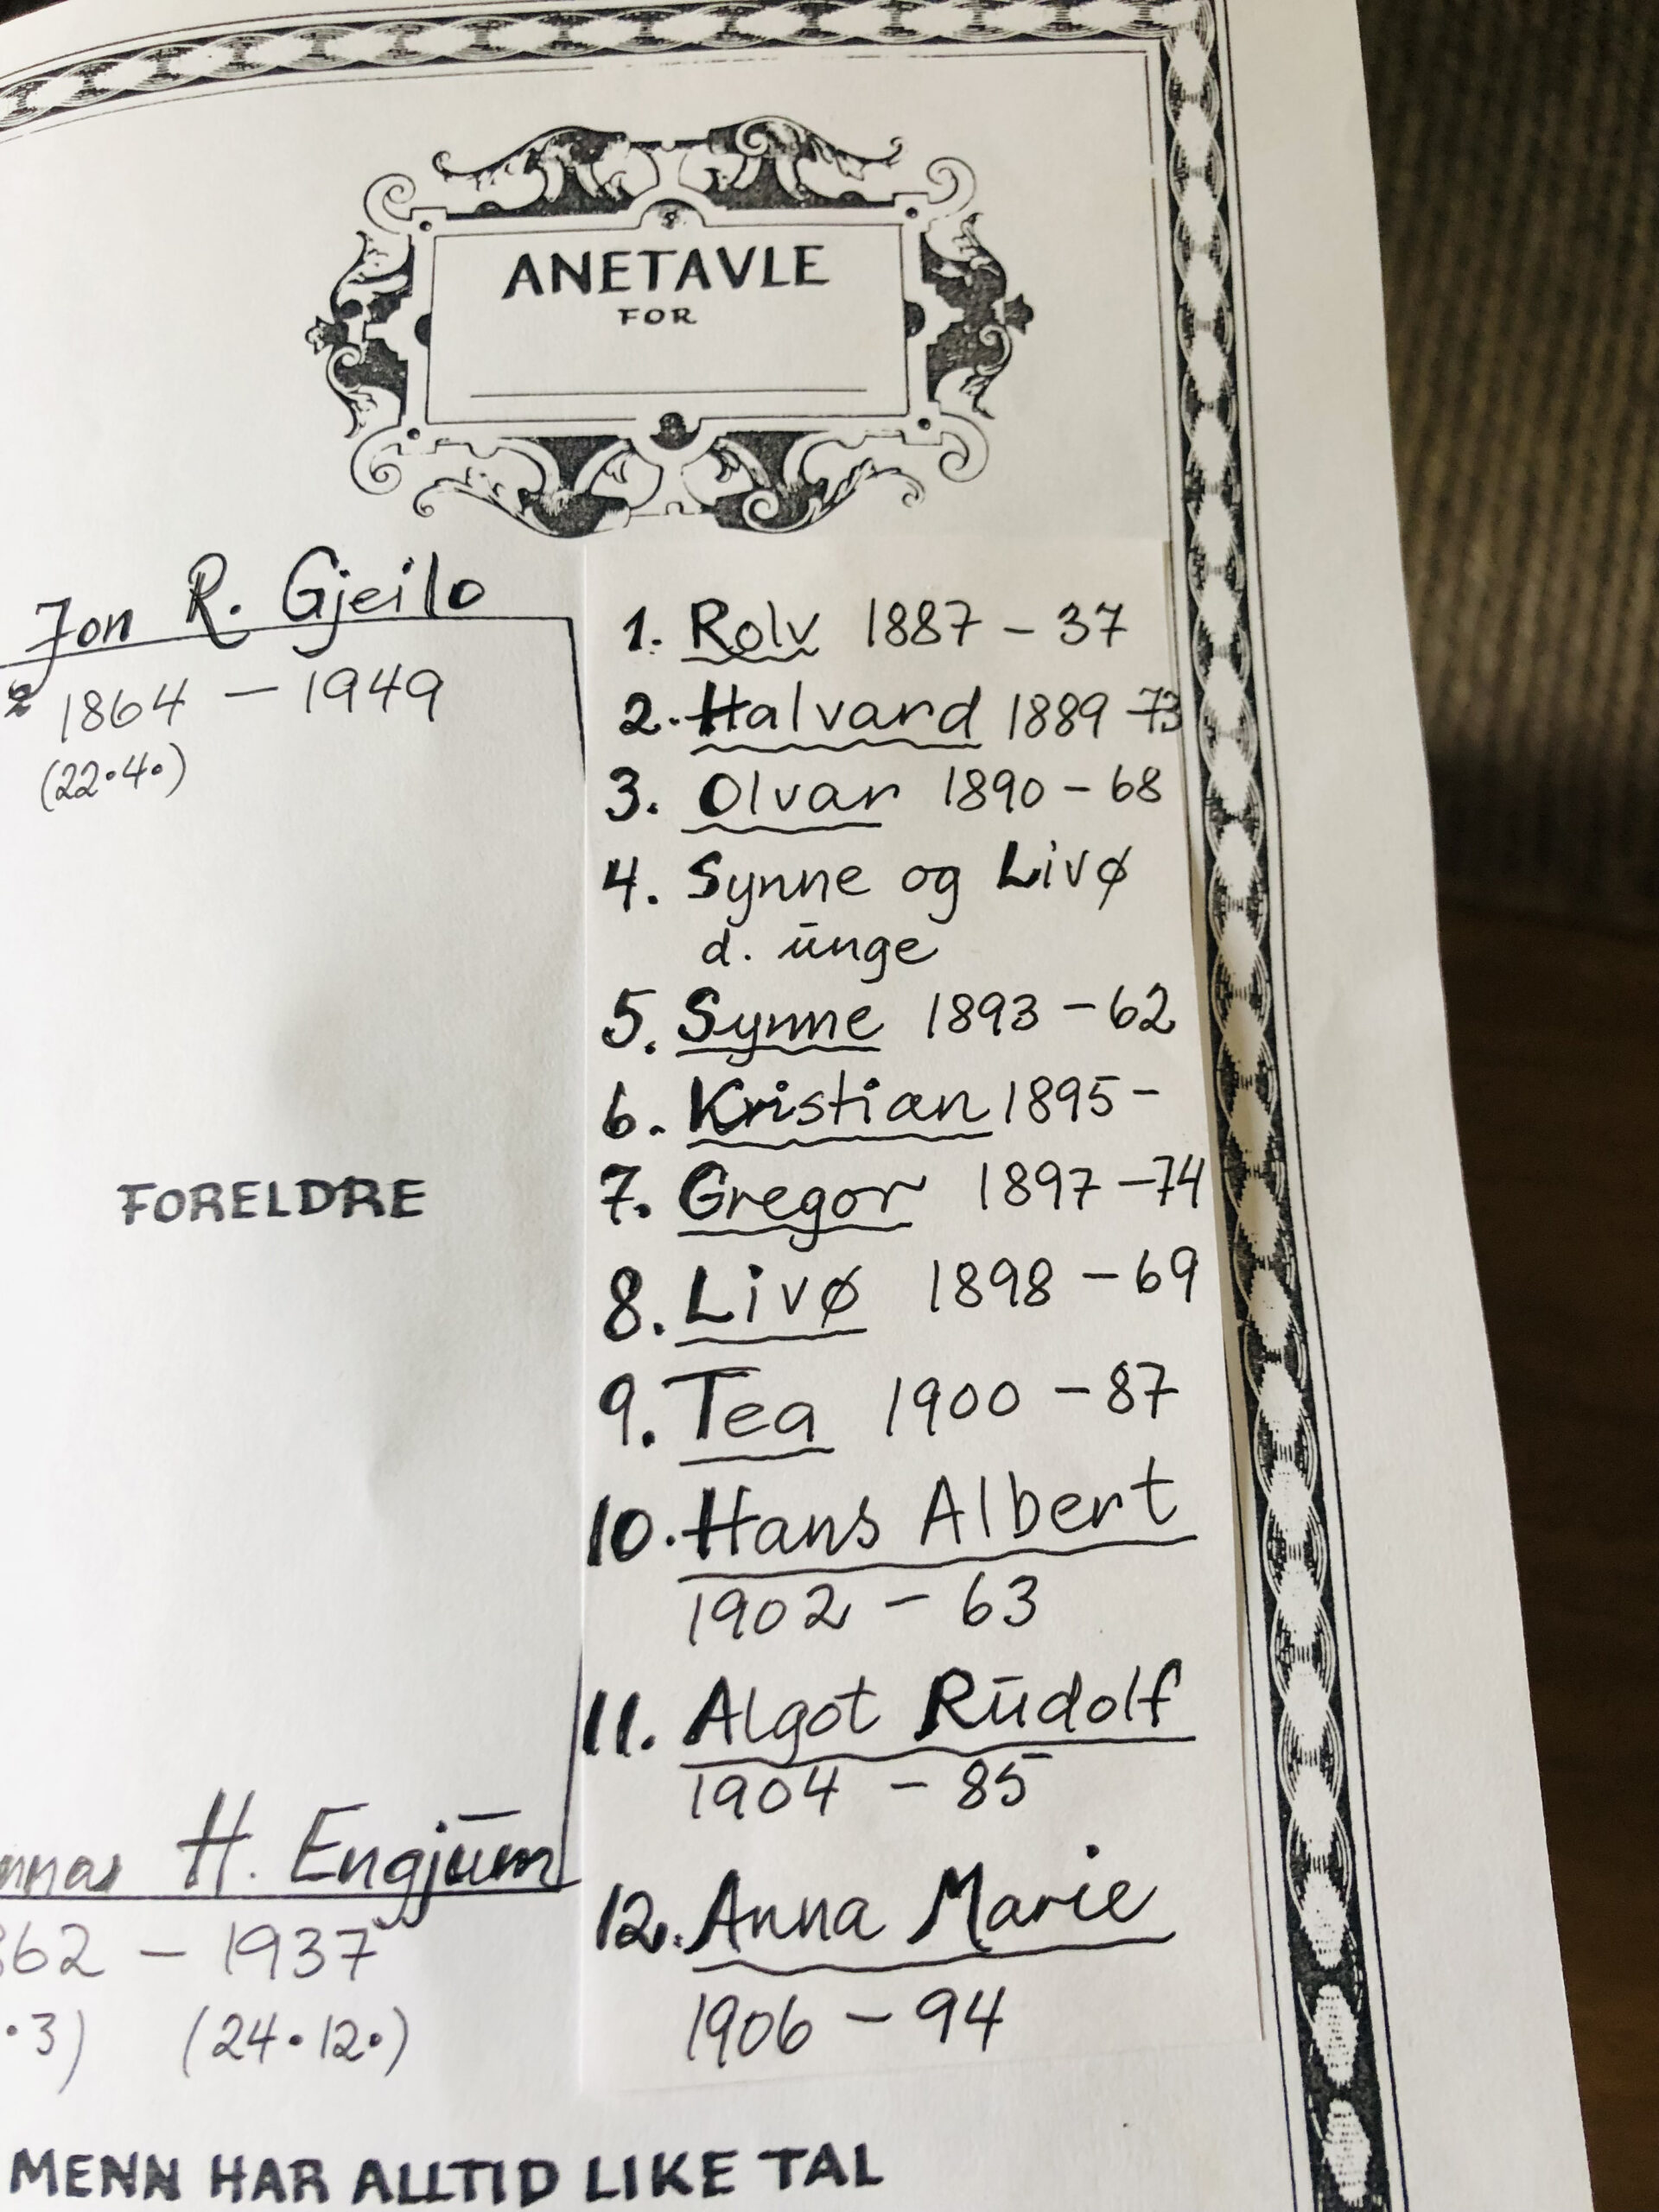 ANETAVLE
FOR
Jon R. Gjeilo
1864 - 1949
(22.4.)
FORELDRE
H. Engjūm
62 - 1937
.3) (24.12.)
1. Rolv 1887 - 37
2. Halvard 1889 - 73
3. Olvar 1890 - 68
4. Synne og Livø
d. ūnge
5. Synne 1893 - 62
6. Kristian 1895 -
7. Gregor 1897 - 74
8. Livø 1898 - 69
9. Tea 1900 - 87
10. Hans Albert
1902 - 63
11. Algot Rūdolf
1904 - 85
12. Anna Marie
1906 - 94
MENN HAR ALLTID LIKE TAL